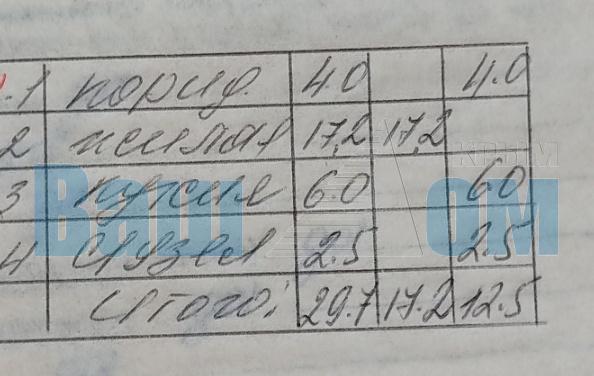 1 корид. 4.0 4.0
2 жилая 17,2 17,2
3 кухня 6.0 6.0
4 с/узел 2.5 2.5
Итого: 29.7 17.2 12.5
Ваш Дом
КРЫМ